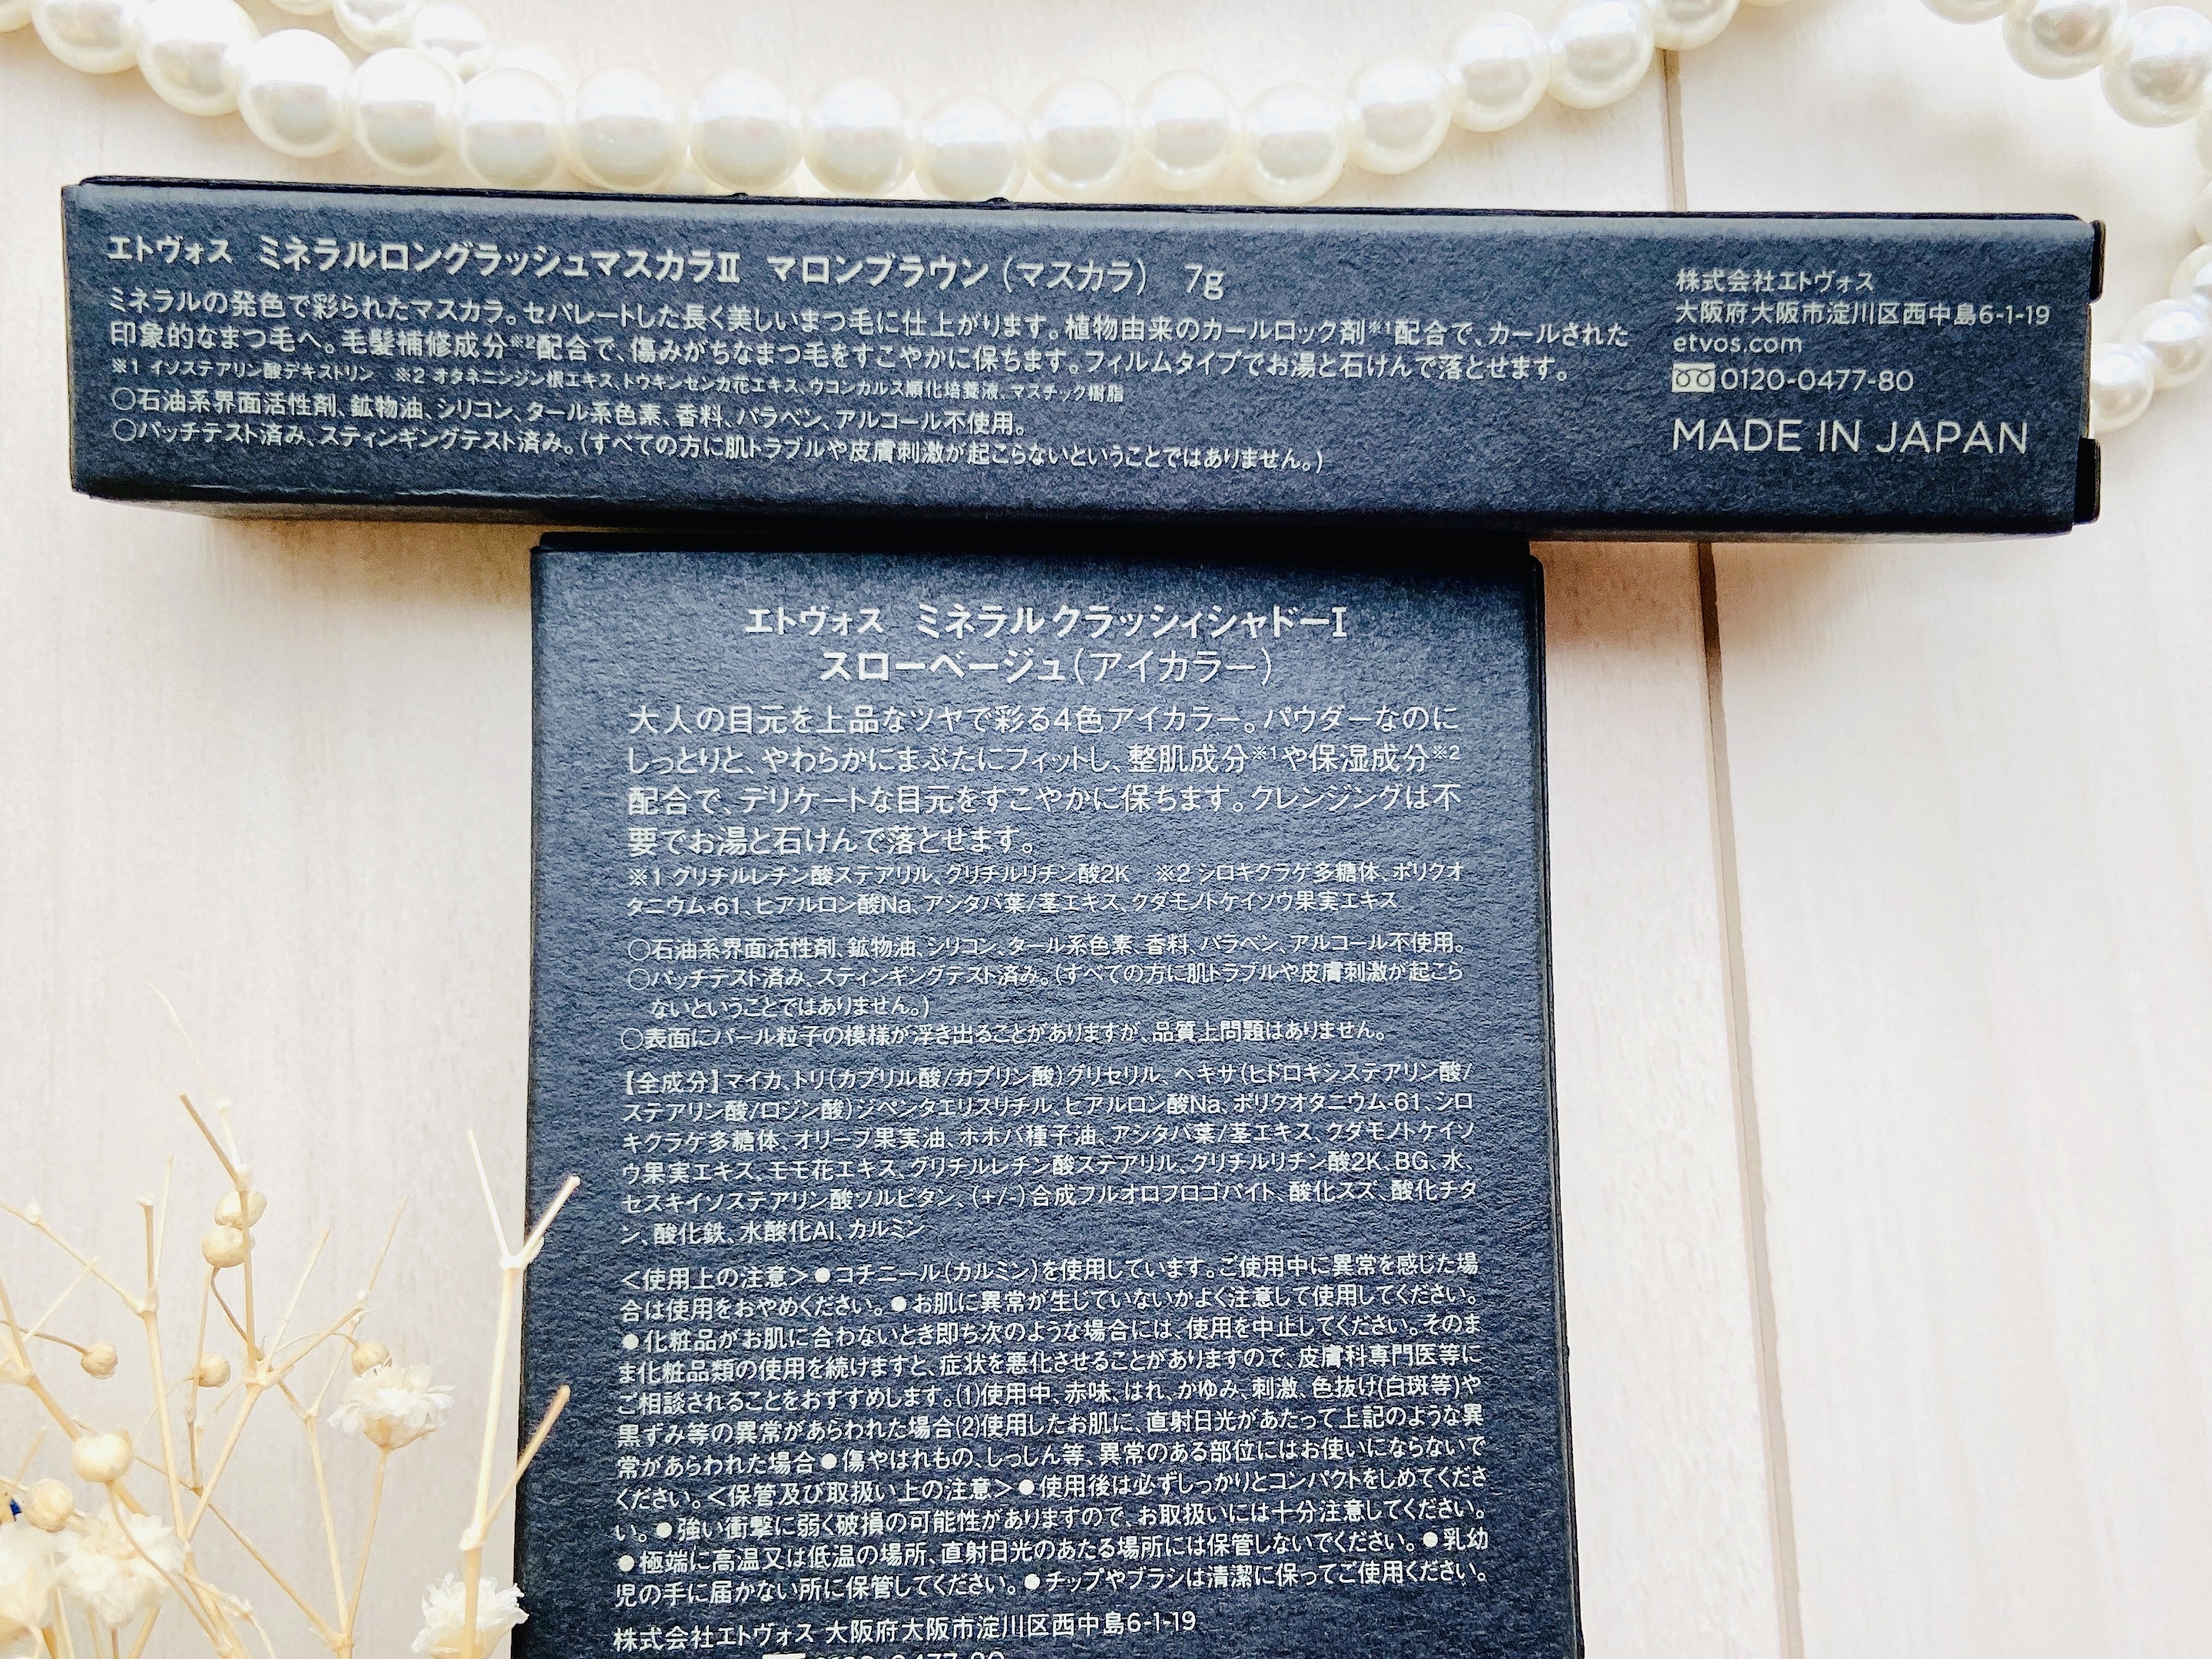 エトヴォス ミネラルロングラッシュマスカラⅡ マロンブラウン(マスカラ) 7g
ミネラルの発色で彩られたマスカラ。セパレートした長く美しいまつ毛に仕上がります。植物由来のカールロック剤※1配合で、カールされた
印象的なまつ毛へ。毛髪補修成分※2配合で、傷みがちなまつ毛をすこやかに保ちます。フィルムタイプでお湯と石けんで落とせます。
※1 イソステアリン酸デキストリン ※2 オタネニンジン根エキス、トウキンセンカ花エキス、ウコンカルス順化培養液、マスチック樹脂
○石油系界面活性剤、鉱物油、シリコン、タール系色素、香料、パラベン、アルコール不使用。
○パッチテスト済み、スティンギングテスト済み。(すべての方に肌トラブルや皮膚刺激が起こらないということではありません。)
株式会社エトヴォス
大阪府大阪市淀川区西中島6-1-19
etvos.com
0120-0477-80
MADE IN JAPAN
エトヴォス ミネラルクラッシィシャドーⅠ
スローベージュ(アイカラー)
大人の目元を上品なツヤで彩る4色アイカラー。パウダーなのに
しっとりと、やわらかにまぶたにフィットし、整肌成分※1や保湿成分※2
配合で、デリケートな目元をすこやかに保ちます。クレンジングは不
要でお湯と石けんで落とせます。
※1 グリチルレチン酸ステアリル、グリチルリチン酸2K ※2 シロキクラゲ多糖体、ポリクオ
タニウム-61、ヒアルロン酸Na、アシタバ葉/茎エキス、クダモノトケイソウ果実エキス
○石油系界面活性剤、鉱物油、シリコン、タール系色素、香料、パラベン、アルコール不使用。
○パッチテスト済み、スティンギングテスト済み。(すべての方に肌トラブルや皮膚刺激が起こら
ないということではありません。)
○表面にパール粒子の模様が浮き出ることがありますが、品質上問題はありません。
【全成分】マイカ、トリ(カプリル酸/カプリン酸)グリセリル、ヘキサ(ヒドロキシステアリン酸/
ステアリン酸/ロジン酸)ジペンタエリスリチル、ヒアルロン酸Na、ポリクオタニウム-61、シロ
キクラゲ多糖体、オリーブ果実油、ホホバ種子油、アシタバ葉/茎エキス、クダモノトケイソ
ウ果実エキス、モモ花エキス、グリチルレチン酸ステアリル、グリチルリチン酸2K、BG、水、
セスキイソステアリン酸ソルビタン、(+/-)合成フルオロフロゴパイト、酸化スズ、酸化チタ
ン、酸化鉄、水酸化Al、カルミン
<使用上の注意>●コチニール(カルミン)を使用しています。ご使用中に異常を感じた場
合は使用をおやめください。●お肌に異常が生じていないかよく注意して使用してください。
●化粧品がお肌に合わないとき即ち次のような場合には、使用を中止してください。そのま
ま化粧品類の使用を続けますと、症状を悪化させることがありますので、皮膚科専門医等に
ご相談されることをおすすめします。(1)使用中、赤味、はれ、かゆみ、刺激、色抜け(白斑等)や
黒ずみ等の異常があらわれた場合(2)使用したお肌に、直射日光があたって上記のような異
常があらわれた場合●傷やはれもの、しっしん等、異常のある部位にはお使いにならないで
ください。<保管及び取扱い上の注意>●使用後は必ずしっかりとコンパクトをしめてくださ
い。●強い衝撃に弱く破損の可能性がありますので、お取扱いには十分注意してください。
●極端に高温又は低温の場所、直射日光のあたる場所には保管しないでください。●乳幼
児の手に届かない所に保管してください。●チップやブラシは清潔に保ってご使用ください。
株式会社エトヴォス 大阪府大阪市淀川区西中島6-1-19